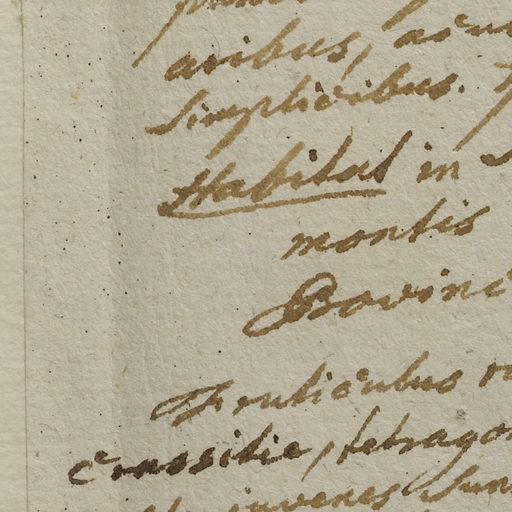 aribus, acu
simplicibus.
Habitat in
montis
Provinc
Fruticulus
crassitie, tetragon
juvenes sun